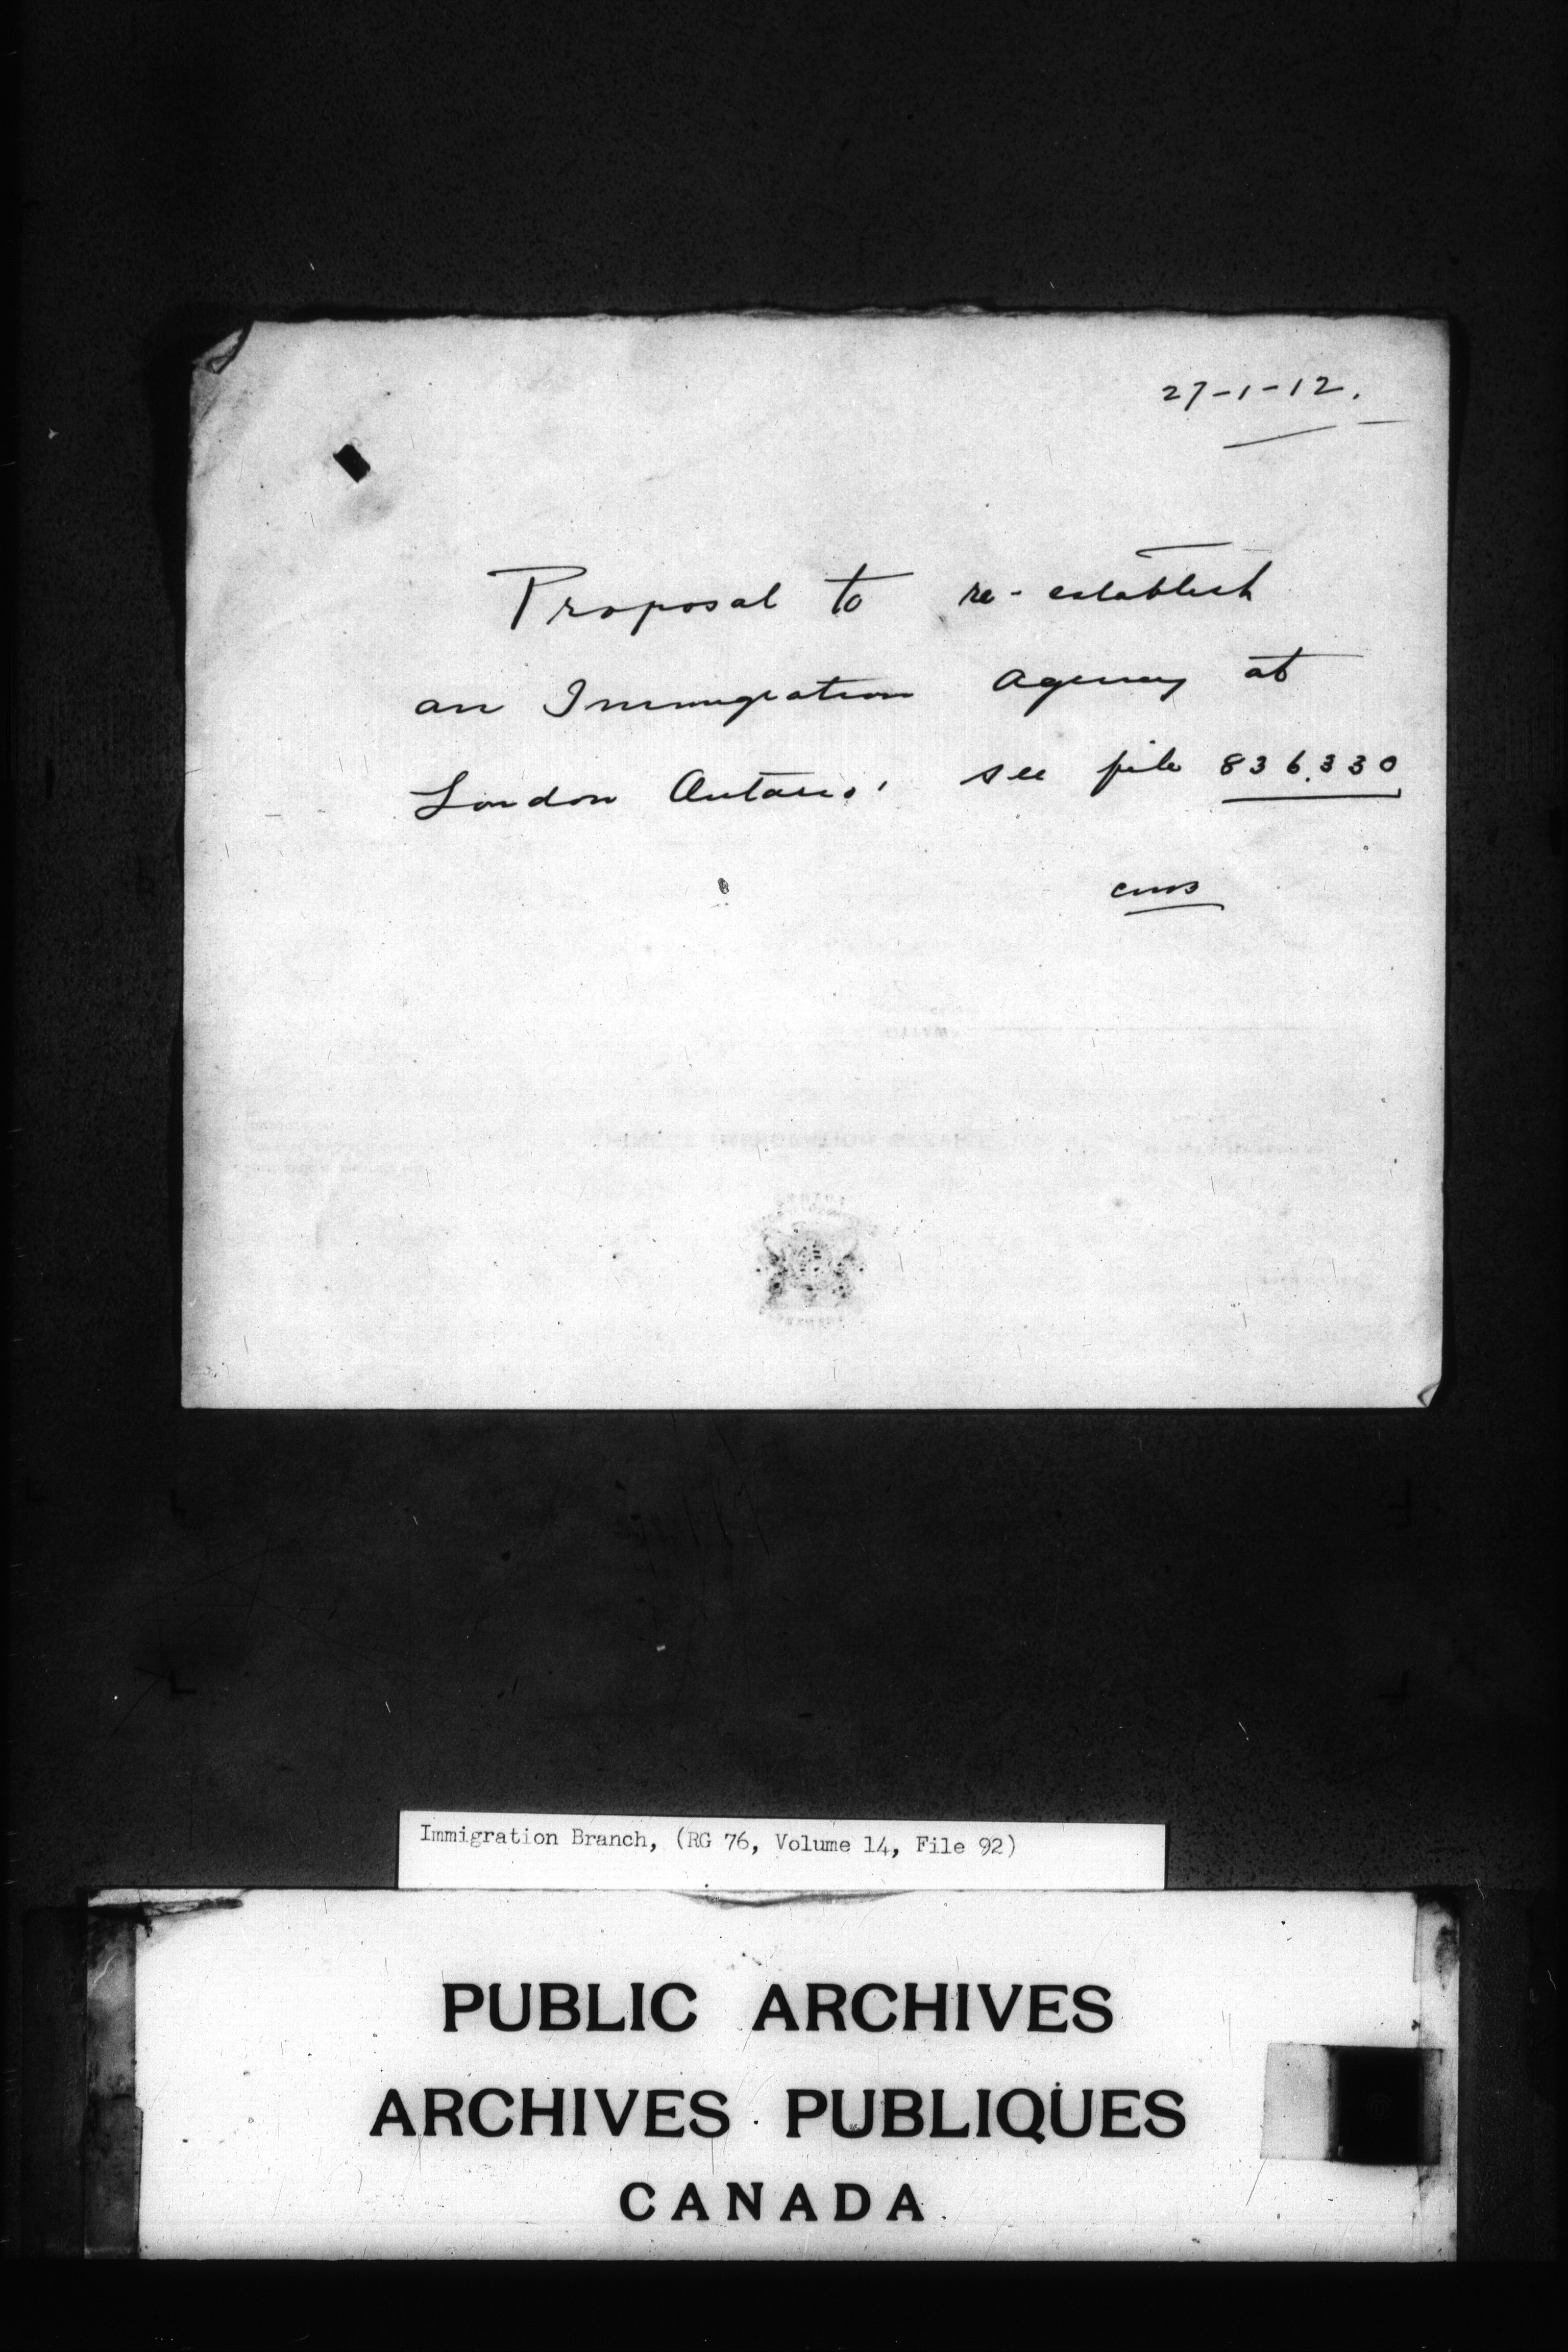 27-1-12.
Proposal to re-establish
an Immigration agency at
London Ontario. see file 836.330
Immigration Branch, (RG 76, Volume 14, File 92)
PUBLIC ARCHIVES
ARCHIVES PUBLIQUES
CANADA